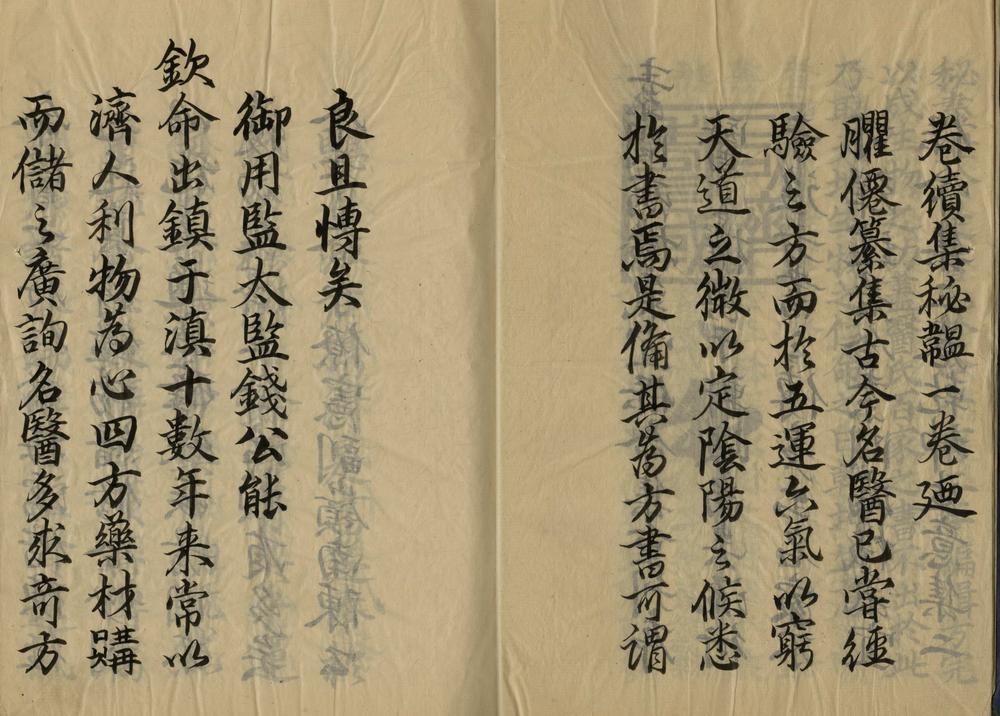 卷續集秘韞一卷廼
臞僊纂集古今名醫已嘗經
驗之方而扵五運六氣以窮
天道之微以定陰陽之候悉
扵書焉是備其為方書可謂
良且博矣
御用監太監錢公能
欽命出鎮于滇十數年来常以
濟人利物為心四方藥材購
而儲之廣詢名醫多求竒方